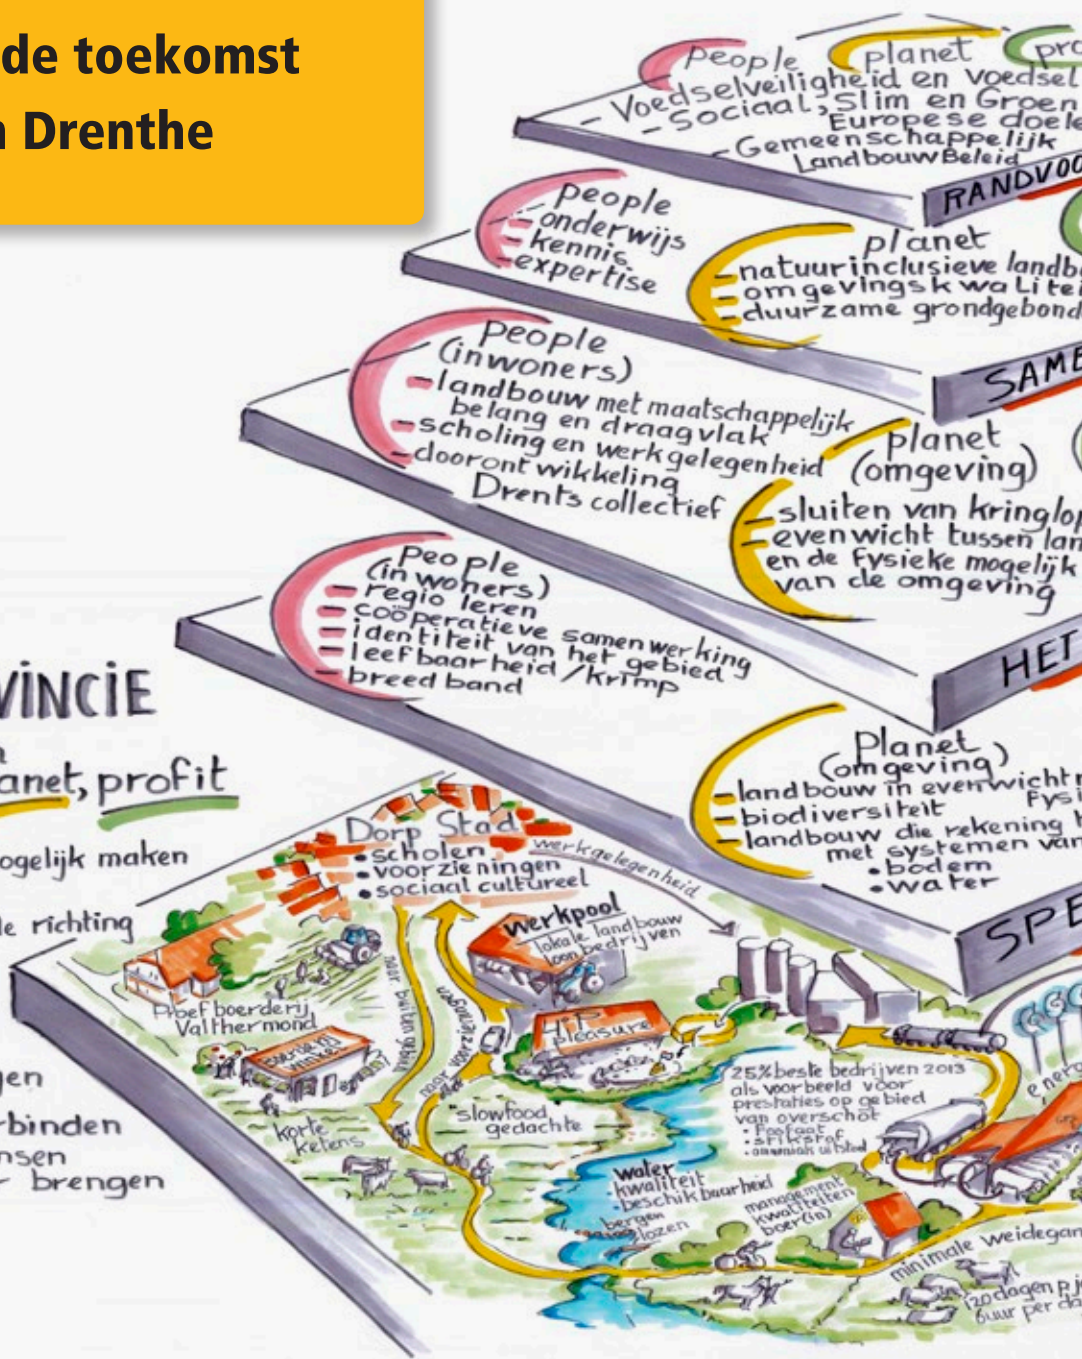 de toekomst
Drenthe
people
planet
Voedselveiligheid en voedsel
- Sociaal, Slim en Groen
Europese doele
- Gemeenschappelijk
LandbouwBeleid
RANDVOO
people
- onderwijs
- kennis
- expertise
planet
- natuurinclusieve landb
- omgevingskwalitei
- duurzame grondgebond
SAME
people
(inwoners)
- landbouw met maatschappelijk
belang en draagvlak
- scholing en werkgelegenheid
- doorontwikkeling
Drents collectief
planet
(omgeving)
- sluiten van kringlo
- evenwicht tussen lan
en de fysieke mogelijk
van de omgeving
HET
people
(inwoners)
- regio leren
- coöperatieve samenwerking
- identiteit van het gebied
- leefbaarheid/krimp
- breed band
Planet
(omgeving)
- landbouw in evenwicht
fysi
- biodiversiteit
- landbouw die rekening
met systemen van
• bodem
• water
SPE
VINCIE
anet, profit
ogelijk maken
e richting
gen
rbinden
nsen
brengen
Dorp Stad
• scholen
• voorzieningen
• sociaal cultureel
werkgelegenheid
werkpool
lokale landbouw
loon bedrijven
naar buitengebied
naar voorzieningen
Proefboerderij
Valthermond
Boerderij
winkel
korte
ketens
HiP
pleasure
slowfood
gedachte
25% beste bedrijven 2013
als voorbeeld voor
prestaties op gebied
van overschot
• fosfaat
• stikstof
• ammoniak uitstoot
energ
water
• kwaliteit
• beschikbaarheid
bergen
lozen
management
kwaliteiten
boer(in)
minimale weidegan
120 dagen p. j
6uur per da